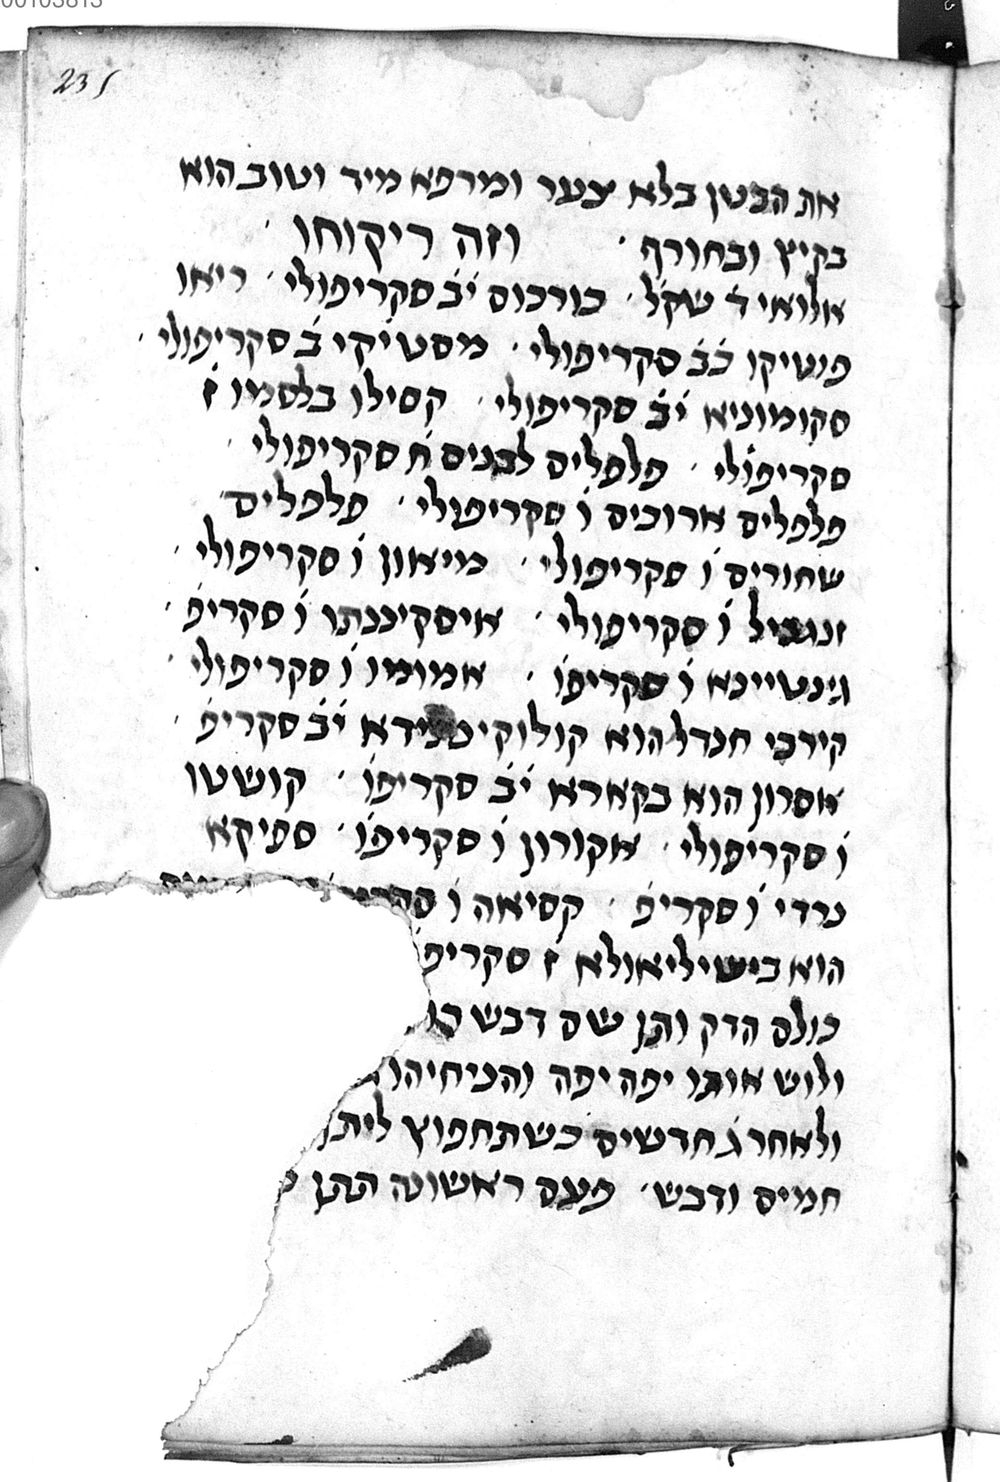 00103813
235
את הבטן בלא צער ומרפא מיד וטוב הוא
בקיץ ובחורף ׳ וזה ריקוחו ׳
אלואי ד̇ שקל ׳ כורכוס י̇ב̇ סקריפולי ׳ ריאו
פנטיקו כ̇ב̇ סקריפולי ׳ מסטיקי ב̇ סקריפולי ׳
סקומוניא י̇ב̇ סקריפולי ׳ קסילו בלסמו ז̇
סקריפולי ׳ פלפלים לבנים ח̇ סקריפולי ׳
פלפלים ארוכים ו̇ סקריפולי ׳ פלפלים
שחורים ו̇ סקריפולי ׳ מיאון ו̇ סקריפולי ׳
זנגביל ו̇ סקריפולי ׳ איסקיננתו ו̇ סקריפ̇ ׳
גינטיינא ו̇ סקריפו̇ ׳ אמומו ו̇ סקריפולי ׳
קירבי חנדל הוא י̇ב̇ סקריפ̇ ׳
אסרון הוא בקארא י̇ב̇ סקריפו̇ ׳ קושטו
ו̇ סקריפולי ׳ אקורון ו̇ סקריפו̇ ׳ ספיקא
נרדי ו̇ סקריפ̇ ׳ קסיאה ו̇
הוא ז̇ סקריפ̇
כולם הדק ותן שם דבש
ולוש אותו יפה יפה והניחיהו
ולאחר ג̇ חדשים כשתחפוץ ליתן
חמים ודבש ׳ פעם ראשונה תתן